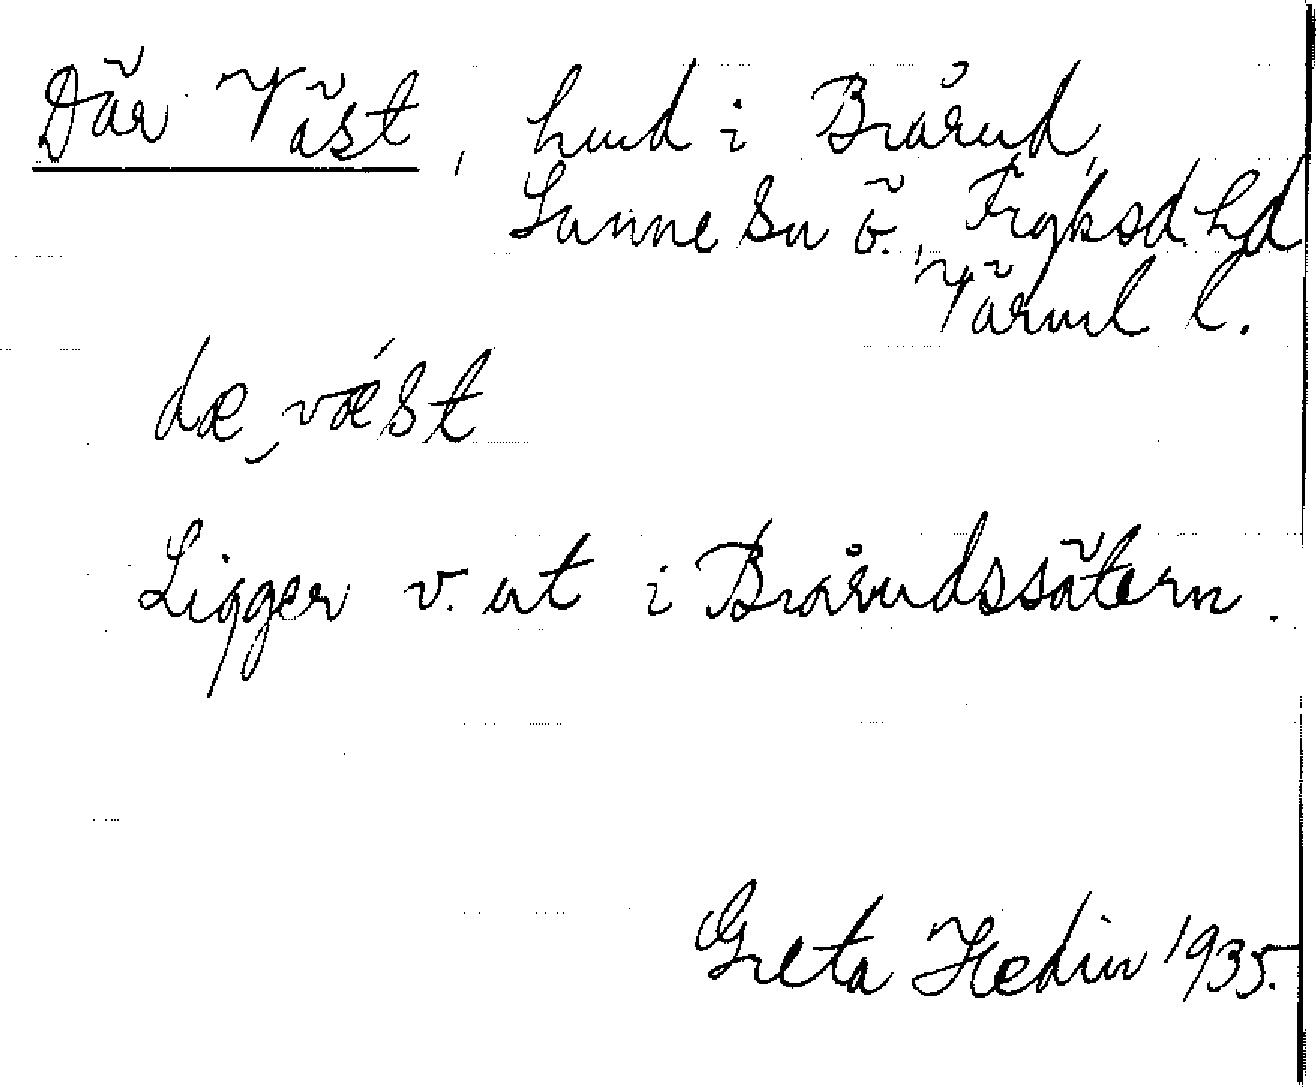 Där Väst, hmd i Brårud,
Sunne sn ö., Fryksd. hd
Värml l.
dæ ̮vǽst
Ligger v. ut i Brårudssätern.
Greta Hedin 1935.